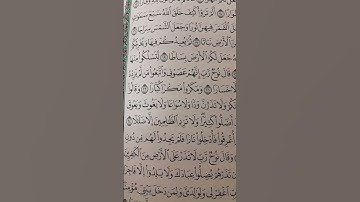 أَطْوَارًا ١٤ أَلَمْ تَرَوْا۟ كَيْفَ خَلَقَ ٱللَّهُ سَبْعَ سَمَٰوَٰتٍ
ٱلْقَمَرَ فِيهِنَّ نُورًا وَجَعَلَ ٱلشَّمْسَ سِرَاجًا
ٱلْأَرْضِ نَبَاتًا ١٧ ثُمَّ يُعِيدُكُمْ فِيهَا وَيُخْرِجُكُمْ
جَعَلَ لَكُمُ ٱلْأَرْضَ بِسَاطًا ١٩ لِّتَسْلُكُوا۟ مِنْهَا
نُوحٌ رَّبِّ إِنَّهُمْ عَصَوْنِى وَٱتَّبَعُوا۟ مَن لَّمْ
خَسَارًا ٢١ وَمَكَرُوا۟ مَكْرًا كُبَّارًا ٢٢ وَقَالُوا۟
وَلَا تَذَرُنَّ وَدًّا وَلَا سُوَاعًا وَلَا يَغُوثَ وَيَعُوقَ
أَضَلُّوا۟ كَثِيرًا وَلَا تَزِدِ ٱلظَّٰلِمِينَ إِلَّا ضَلَٰلًا
أُغْرِقُوا۟ فَأُدْخِلُوا۟ نَارًا فَلَمْ يَجِدُوا۟ لَهُم مِّن دُونِ
وَقَالَ نُوحٌ رَّبِّ لَا تَذَرْ عَلَى ٱلْأَرْضِ مِنَ ٱلْكَٰفِرِينَ
تَذَرْهُمْ يُضِلُّوا۟ عِبَادَكَ وَلَا يَلِدُوٓا۟ إِلَّا فَاجِرًا
رَّبِّ ٱغْفِرْ لِى وَلِوَٰلِدَىَّ وَلِمَن دَخَلَ بَيْتِىَ مُؤْمِنًا